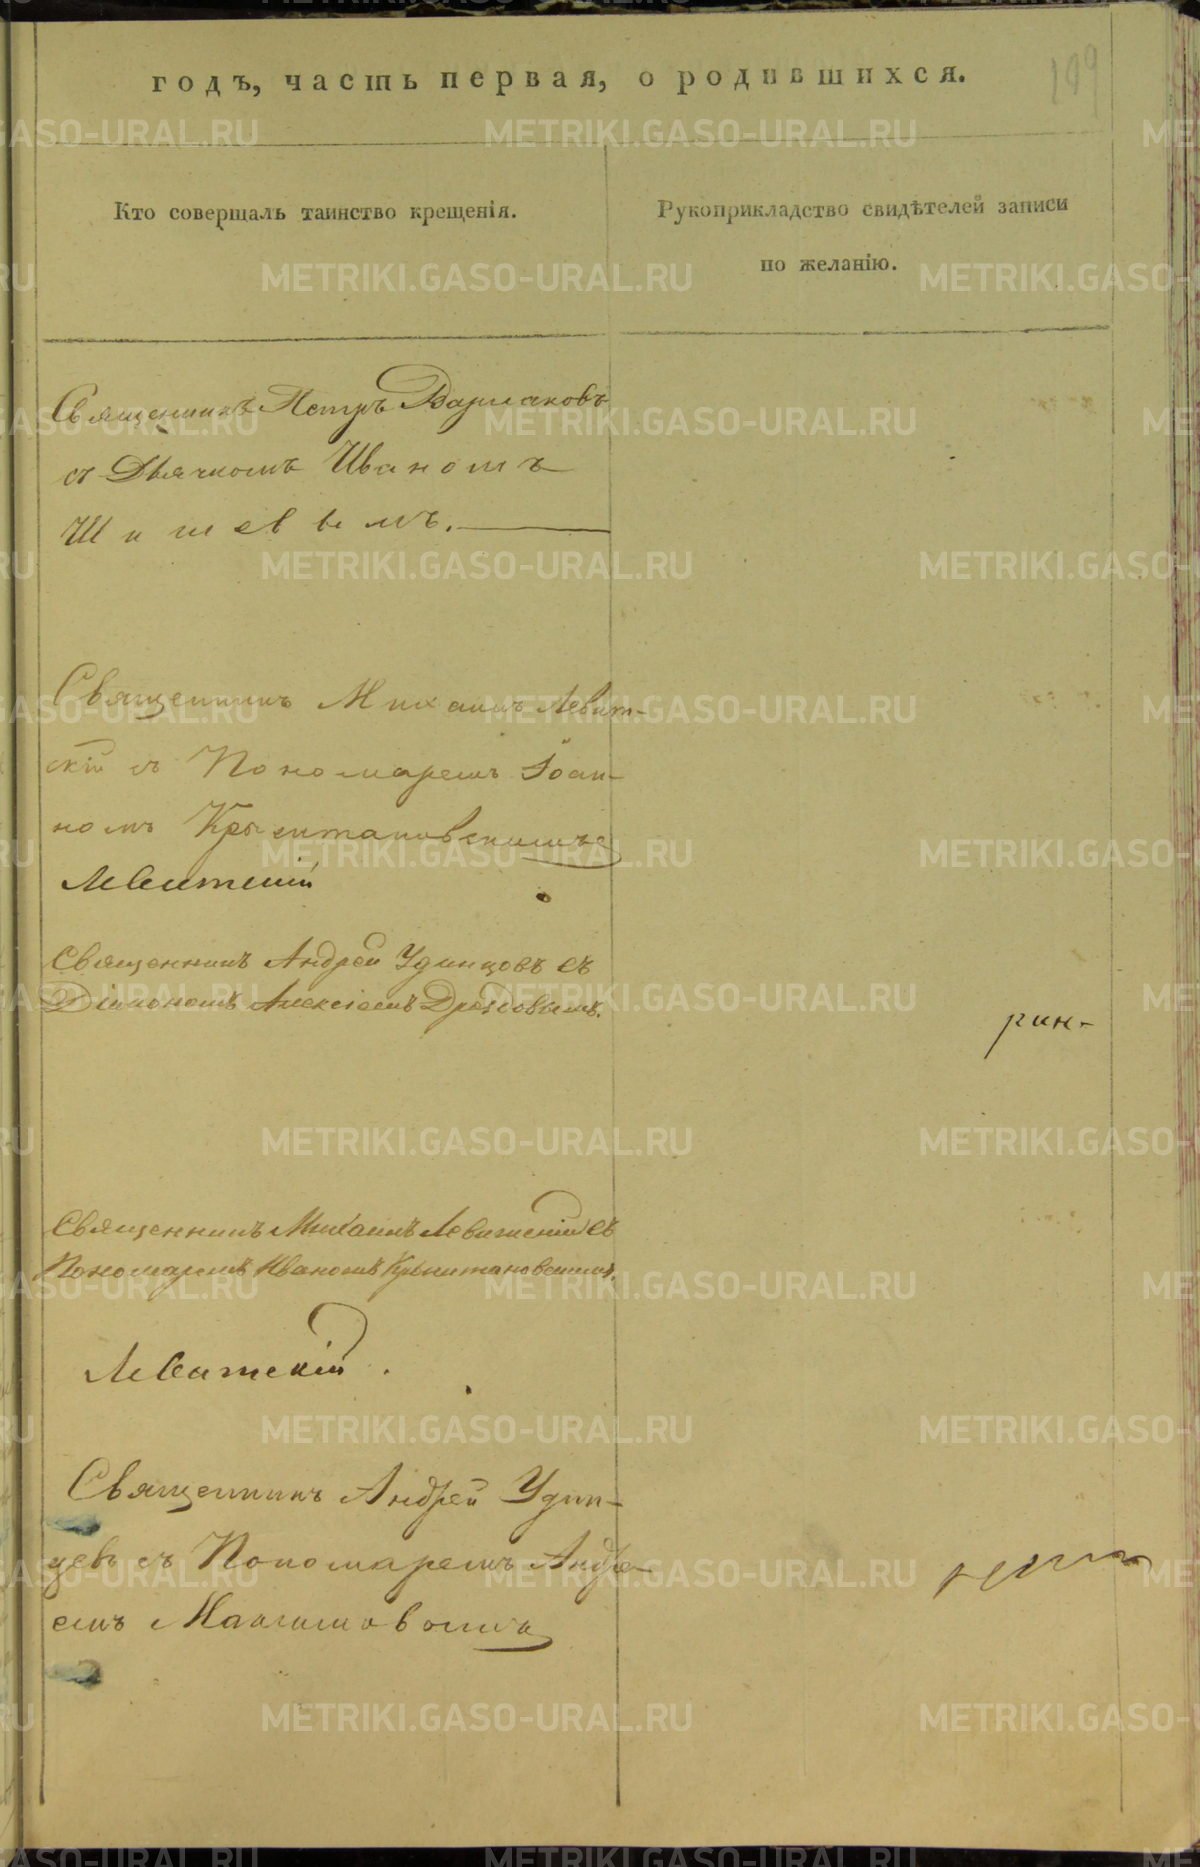 годъ, часть первая, о родившихся.
199
Кто совершалъ таинство крещенія.
Рукоприкладство свидѣтелей записи
по желанію.
Священникъ Петръ Варлаковъ
съ Дьячкомъ Иваномъ
Шишевымъ.
Священникъ Михаилъ Левит-
скій съ Пономаремъ Іоан-
номъ
Левитскій
Священникъ Андрей Удинцовъ съ
Діакономъ Алексіемъ Дроздовымъ.
рин-
Священникъ Михаилъ Левитскій съ
Пономаремъ Иваномъ
Левитскій.
Священникъ Андрей Удин-
цевъ съ Пономаремъ Андре-
емъ Максимовымъ
METRIKI.GASO-URAL.RU